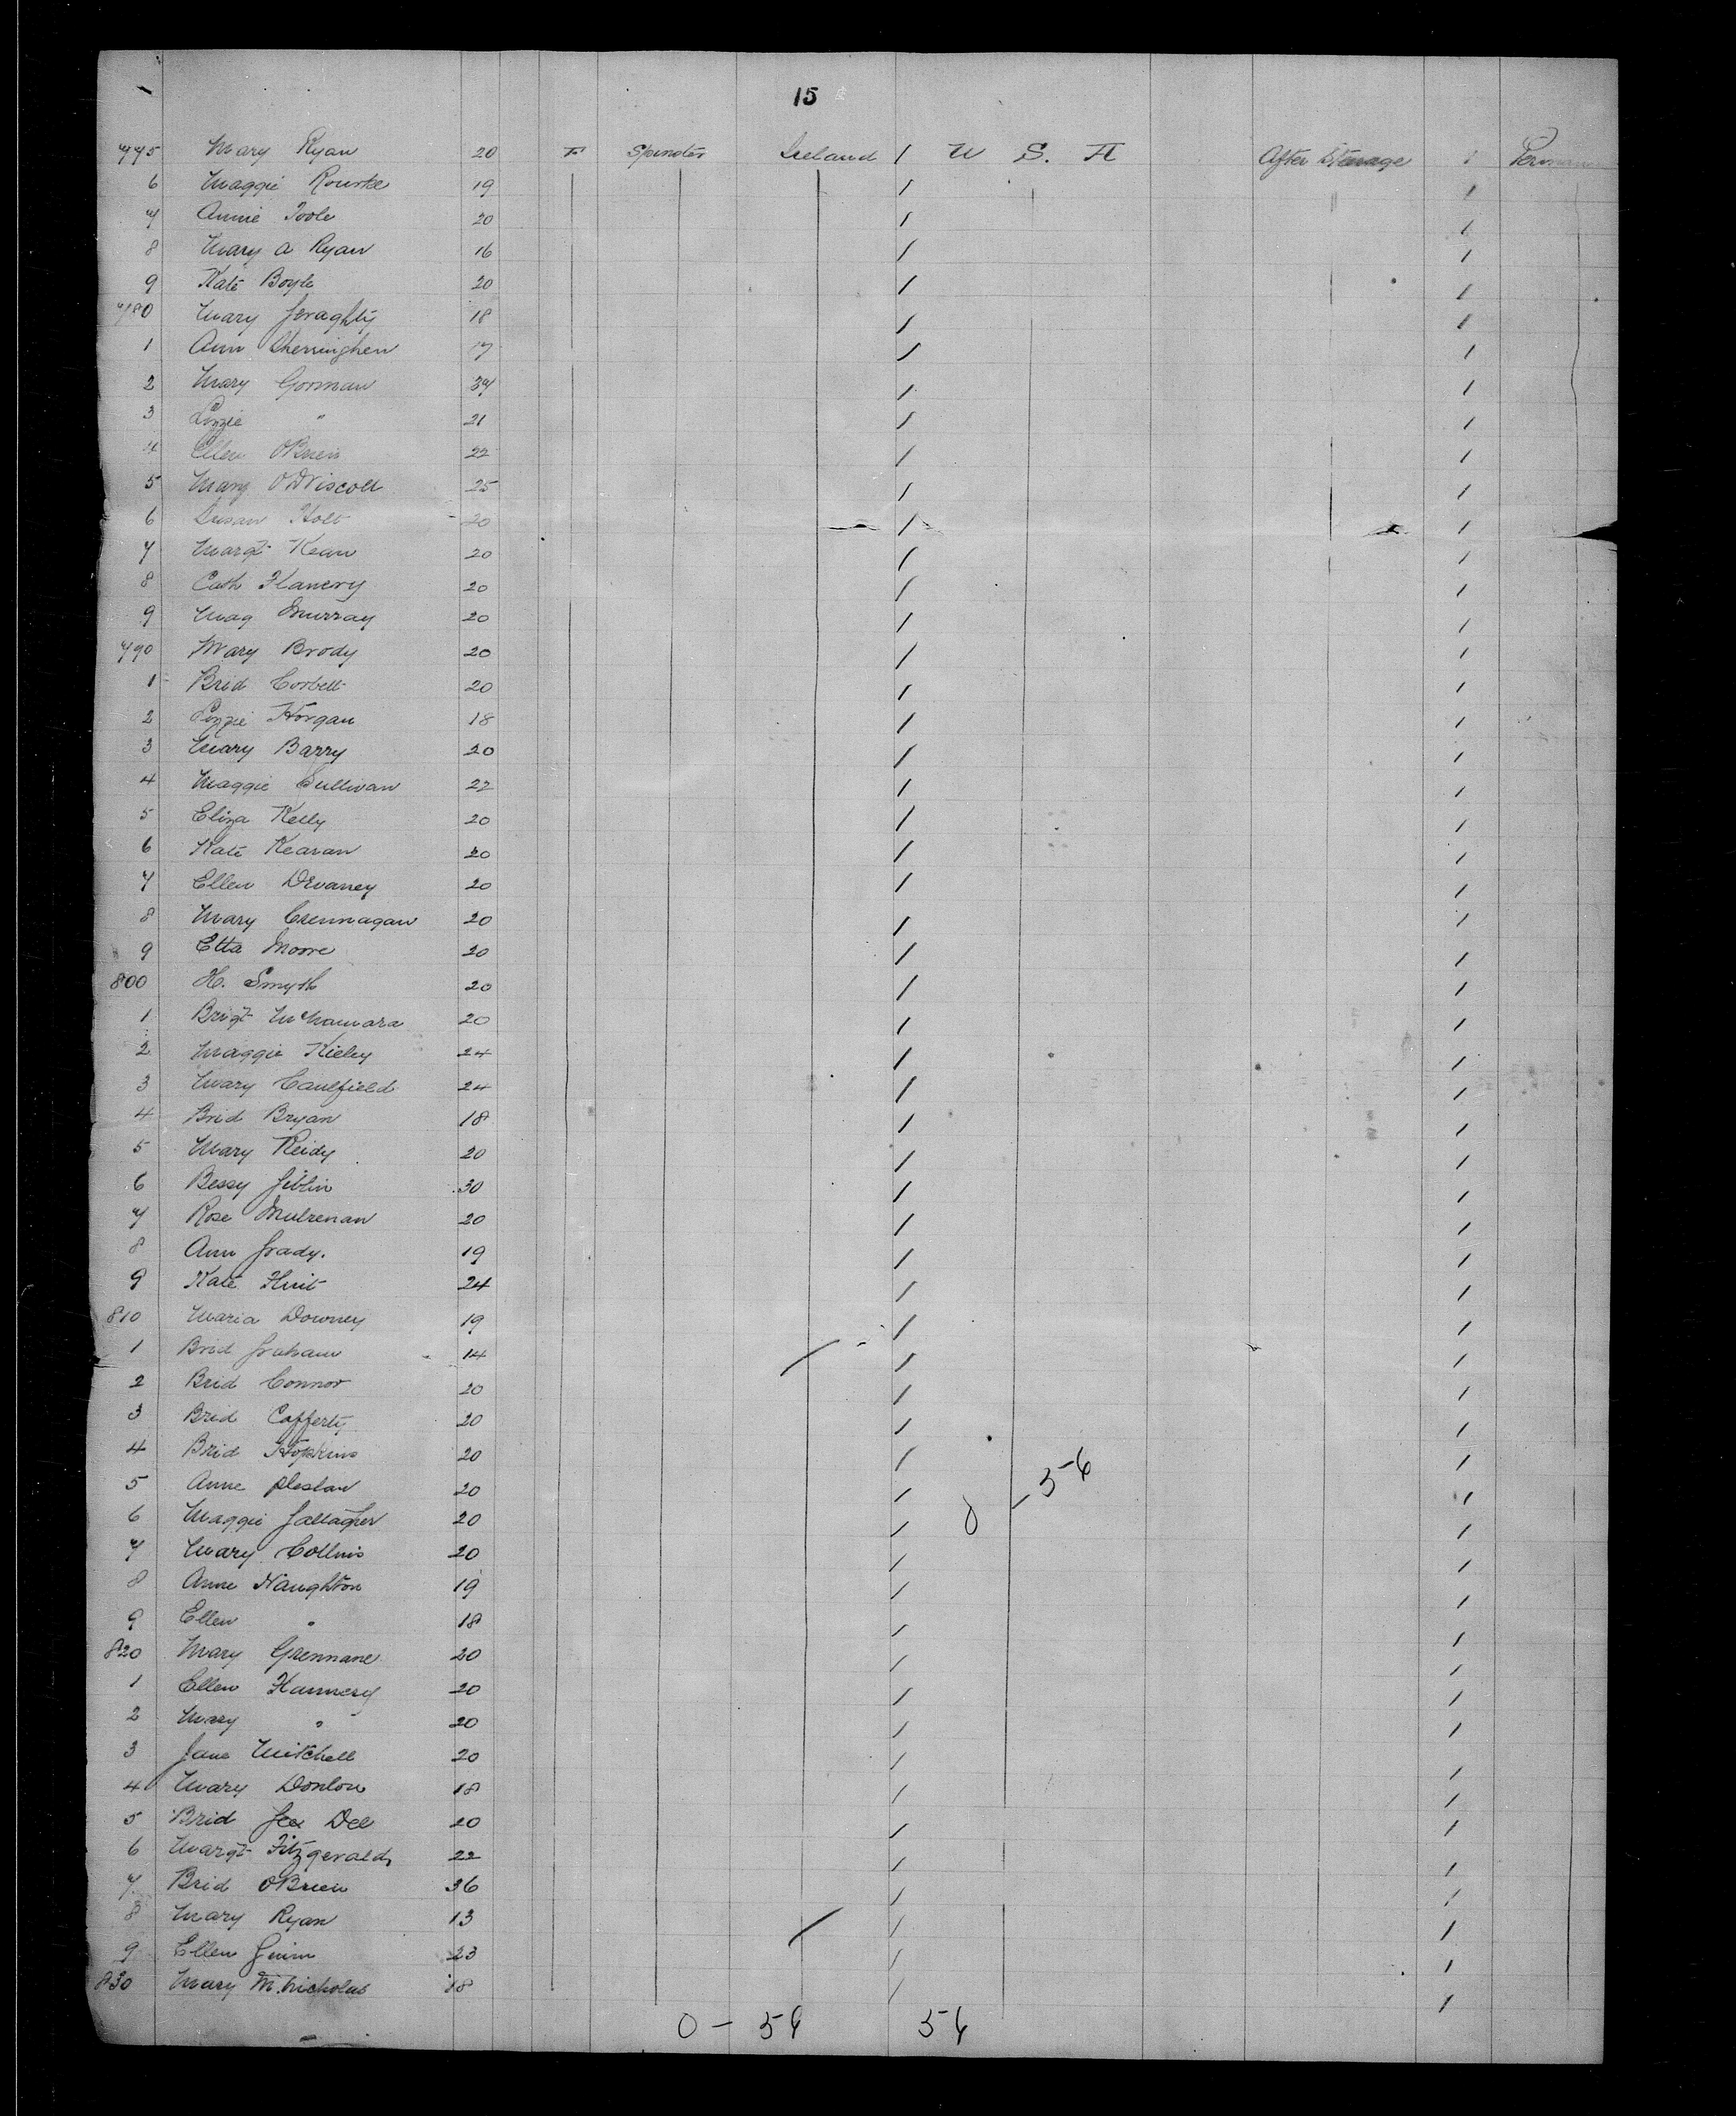 15
775 Mary Ryan 20 F Spinster Ireland / U S. A After Steerage / Perman
6 Maggie Rourke 19 / /
7 Annie Toole 20 / /
8 Mary A Ryan 16 / /
9 Kate Boyle 20 / /
780 Mary Geraghty 18 / /
1 Ann 17 / /
2 Mary Gorman 37 / /
3 Lizzie " 21 / /
4 Ellen OBrien 22 / /
5 Mary O'Driscoll 25 / /
6 Susan Holt 20 / /
7 Margt Kean 20 / /
8 Cath Flanery 20 / /
9 Mag Murray 20 / /
790 Mary Brody 20 / /
1 Brid Corbett 20 / /
2 Lizzie Horgan 18 / /
3 Mary Barry 20 / /
4 Maggie Sullivan 22 / /
5 Eliza Kelly 20 / /
6 Kate Kearan 20 / /
7 Ellen Devaney 20 / /
8 Mary Crennagan 20 / /
9 Etta Moore 20 / /
800 H. Smyth 20 / /
1 Brigt McNamara 20 / /
2 Maggie Kieley 24 / /
3 Mary Caulfield 24 / /
4 Brid Bryan 18 / /
5 Mary Reidy 20 / /
6 Bessy Giblin 30 / /
7 Rose Mulrenan 20 / /
8 Ann Grady. 19 / /
9 Kate 24 / /
810 Maria Downey 19 / /
1 Brid Graham 14 / / /
2 Brid Connor 20 / /
3 Brid Cafferty 20 / /
4 Brid Hopkins 20 / /
5 Anne 20 / /
6 Maggie Gallagher 20 / 0 - 56 /
7 Mary Collins 20 / /
8 Anne Naughton 19 / /
9 Ellen " 18 / /
820 Mary Grennane 20 / /
1 Ellen Flannery 20 / /
2 Mary " 20 / /
3 Jane Mitchell 20 / /
4 Mary Donlon 18 / /
5 Brid Dee 20 / /
6 Margt Fitzgerald 22 / /
7 Brid OBrien 36 / /
8 Mary Ryan 13 / / /
9 Ellen 23 / /
830 Mary McNicholas 18 / /
0 - 56 56